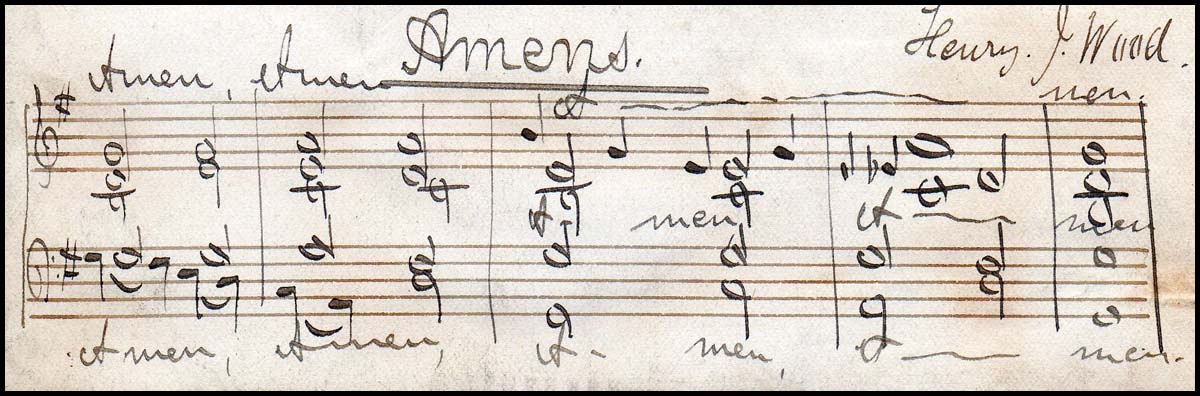 Amens.
Henry. J. Wood.
Amen, Amen A men.
A- men, A men
Amen, Amen, A- men, A men.